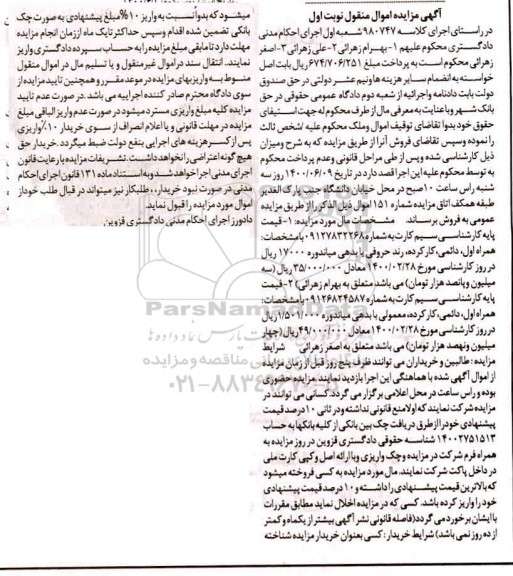 آگهی مزایده اموال منقول نوبت اول
در راستای اجرای کلاسه ۹۸۰۷۴۷ شعبه اول اجرای احکام مدنی
دادگستری محکوم علیهم ۱- بهرام زهرائی ۲-علی زهرائی ۳-اصغر
زهرائی محکوم است به پرداخت مبلغ ۶۷۴/۷۰۶/۲۵۱ ریال بابت اصل
خواسته به انضمام سایر هزینه ها و نیم عشر دولتی در حق صندوق
دولت بابت دادنامه واجرائیه از شعبه دوم دادگاه عمومی حقوقی در حق
بانک شهر و با عنایت به معرفی مال از طرف محکوم له جهت استیفای
حقوق خود بدوا تقاضای توقیف اموال وملک محکوم علیه /شخص ثالث
را نموده وسپس تقاضای فروش آنرا از طریق مزایده که به شرح ومیزان
ذیل کارشناسی شده وپس از طی مراحل قانونی وعدم پرداخت محکوم
به توسط محکوم علیه این اجرا قصد دارد در تاریخ ۱۴۰۰/۰۶/۰۹ روز سه
شنبه راس ساعت ۱۰صبح در محل خیابان دانشگاه جنب پارک الغدیر
طبقه همکف اتاق مزایده شماره ۱۵۱ اموال ذیل الذکر را از طریق مزایده
عمومی به فروش برساند. مشخصات مال مورد مزایده: ۱-قیمت
پایه کارشناسی سیم کارت به شماره ۰۹۱۲۷۸۳۲۲۶۸ با مشخصات:
همراه اول، دائمی، کار کرده، رند حروفی با بدهی میاندوره ۱۷۰۰۰ ریال
در روز کارشناسی مورخ ۱۴۰۰/۰۲/۲۸ معادل ۳۵/۰۰۰/۰۰۰ ریال (سه
میلیون وپانصد هزار تومان) می باشد متعلق به بهرام زهرائی) ۲-قیمت
پایه کارشناسی سیم کارت به شماره ۰۹۱۲۶۸۲۴۵۸۷ با مشخصات:
همراه اول، دائمی، کار کرده، معمولی با بدهی میاندوره ۱/۵۰۱/۰۰۰ ریال
در روز کارشناسی مورخ ۱۴۰۰/۰۲/۲۸ معادل ۴۹/۰۰۰/۰۰۰ ریال (چهار
میلیون ونهصد هزار تومان) می باشد متعلق به اصغر زهرائی شرایط
مزایده: طالبین و خریداران می توانند ظرف پنج روز قبل از زمان مزایده
از اموال آگهی شده با هماهنگی این اجرا بازدید نمایند. مزایده حضوری
بوده و راس ساعت در محل اعلامی برگزار می گردد. کسانی می توانند در
مزایده شرکت نمایند که اولا منع قانونی نداشته ودر ثانی ۱۰ درصد قیمت
پیشنهادی خود را از طریق دریافت چک بین بانکی از کلیه بانکها به حساب
۱۴۰۰۲۷۵۱۵۱۳ شناسه حقوقی دادگستری قزوین در روز مزایده به
همراه فرم شرکت در مزایده وچک واریزی وبا ارائه اصل وکپی کارت ملی
در داخل پاکت شرکت نمایند. مال مورد مزایده به کسی فروخته میشود
که بالاترین قیمت پیشنهادی را داشته و ۱۰ درصد قیمت پیشنهادی
خود را واریز کرده باشد. کسی که در مزایده اخلال نماید مطابق مقررات
با ایشان برخورد می گردد(فاصله قانونی نشر آگهی بیشتر از یکماه وکمتر
از ده روز نمی باشد) شرایط خریدار: کسی بعنوان خریدار مزایده شناخته
میشود که بدوا نسبت به واریز ۱۰٪ مبلغ پیشنهادی به صورت چک
بانکی تضمین شده اقدام وسپس حداکثر تایک ماه از زمان انجام مزایده
مهلت دارد تا مابقی مبلغ مزایده را به حساب سپرده دادگستری واریز
نمایند. انتقال سند در اموال غیر منقول و یا تسلیم مال در اموال منقول
منوط به واریزبهای مزایده در موعد مقرر و همچنین تایید مزایده از
سوی دادگاه محترم صادر کننده اجراییه می باشد. در صورت عدم تایید
مزایده کلیه مبلغ واریزی مسترد میشود در صورت عدم واریز الباقی مبلغ
مزایده در مهلت قانونی و یا اعلام انصراف از سوی خریدار ۱۰٪ واریزی
پس از کسر هزینه های اجرایی بنفع دولت ضبط میگردد. خریدار حق
هیچ گونه اعتراضی را نخواهد داشت. تشریفات مزایده با رعایت قانون
اجرای مدنی اجرا خواهد شد و به استناد ماده ۱۳۱ قانون اجرای احکام
مدنی در صورت نبود خریدار، طلبکار نیز میتواند در قبال طلب خود از
اموال مورد مزایده را قبول نماید.
دادورز اجرای احکام مدنی دادگستری قزوین
ParsNamadData
۰۲۱-۸۸۳۴۹۶۷۰